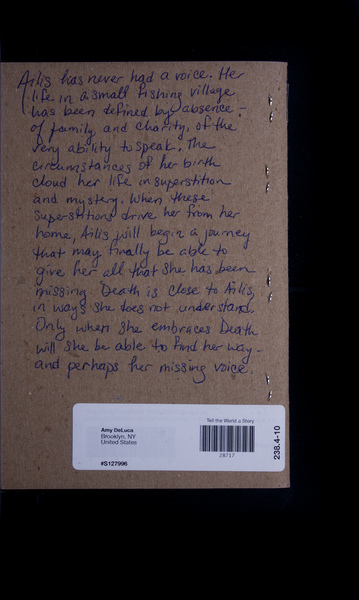 Ailis has never had a voice. Her
life in a small fishing village
has been defined by absence -
of family and charity, of the
very ability to speak. The
circumstances of her birth
cloud her life in superstition
and mystery. When these
superstitions drive her from her
home, Ailis will begin a journey
that may finally be able to
give her all that she has been
missing. Death is close to Ailis,
in ways she does not understand.
Only when she embraces Death
will she be able to find her way -
and perhaps her missing voice.
Tell the World a Story
Amy DeLuca
Brooklyn, NY
United States
28717
#S127996
238.4-10